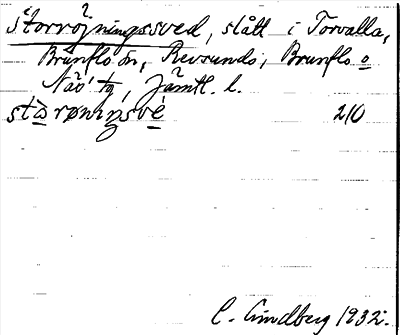 Storröjningssved, slått i Torvalla,
Brunflo sn, Revsunds, Brunflo o
Näs tg, Jämtl. l.
stɷ̀rønıŋsvé 210
C. Lindberg 1932.